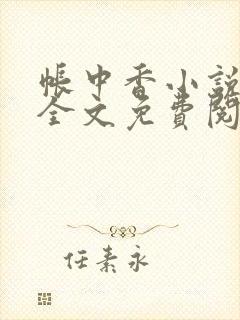 帳中香小說
全文免費閱
任素永